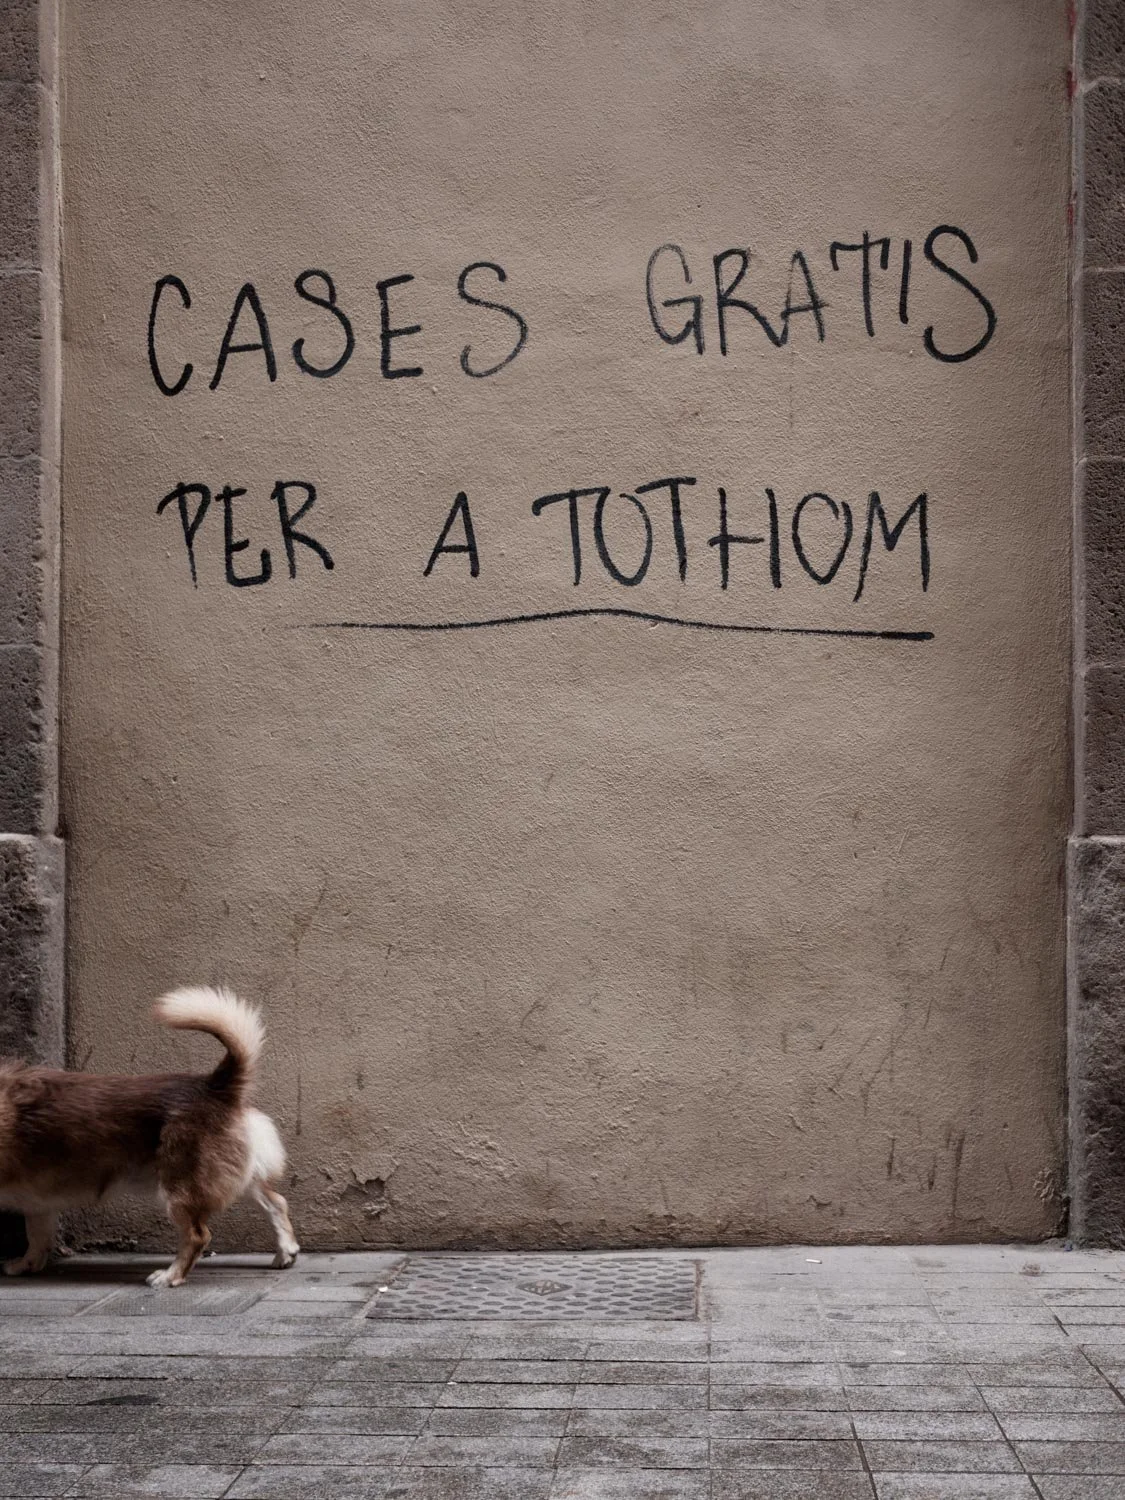 CASES GRATIS
PER A TOTHOM